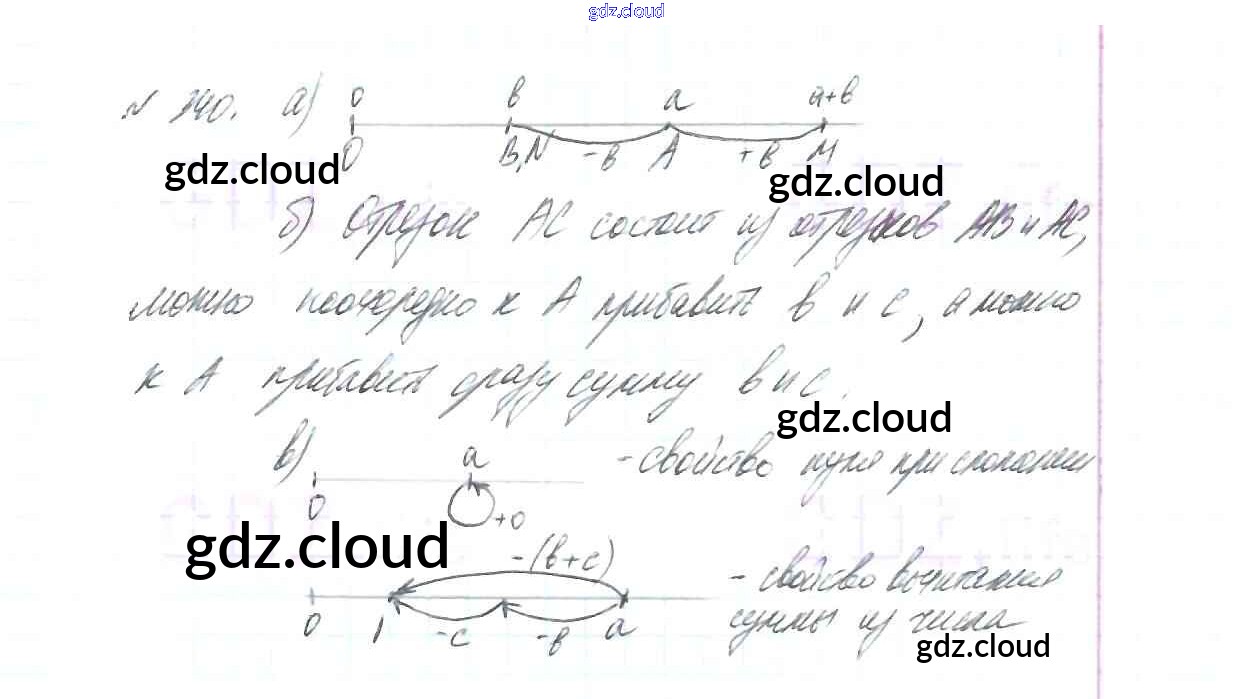 gdz.cloud
№ 340. а) 0 в а а+в
0 B,N -в A +в M
gdz.cloud
gdz.cloud
б) Отрезок АС состоит из отрезков АВ и АС,
можно поочередно к А прибавить в и с, а можно
к А прибавить сразу сумму в и с.
gdz.cloud
в) а - свойство нуля при сложении
0 +0
gdz.cloud
-(в+с) - свойство вычитания
0 1 -с -в а суммы из числа
gdz.cloud